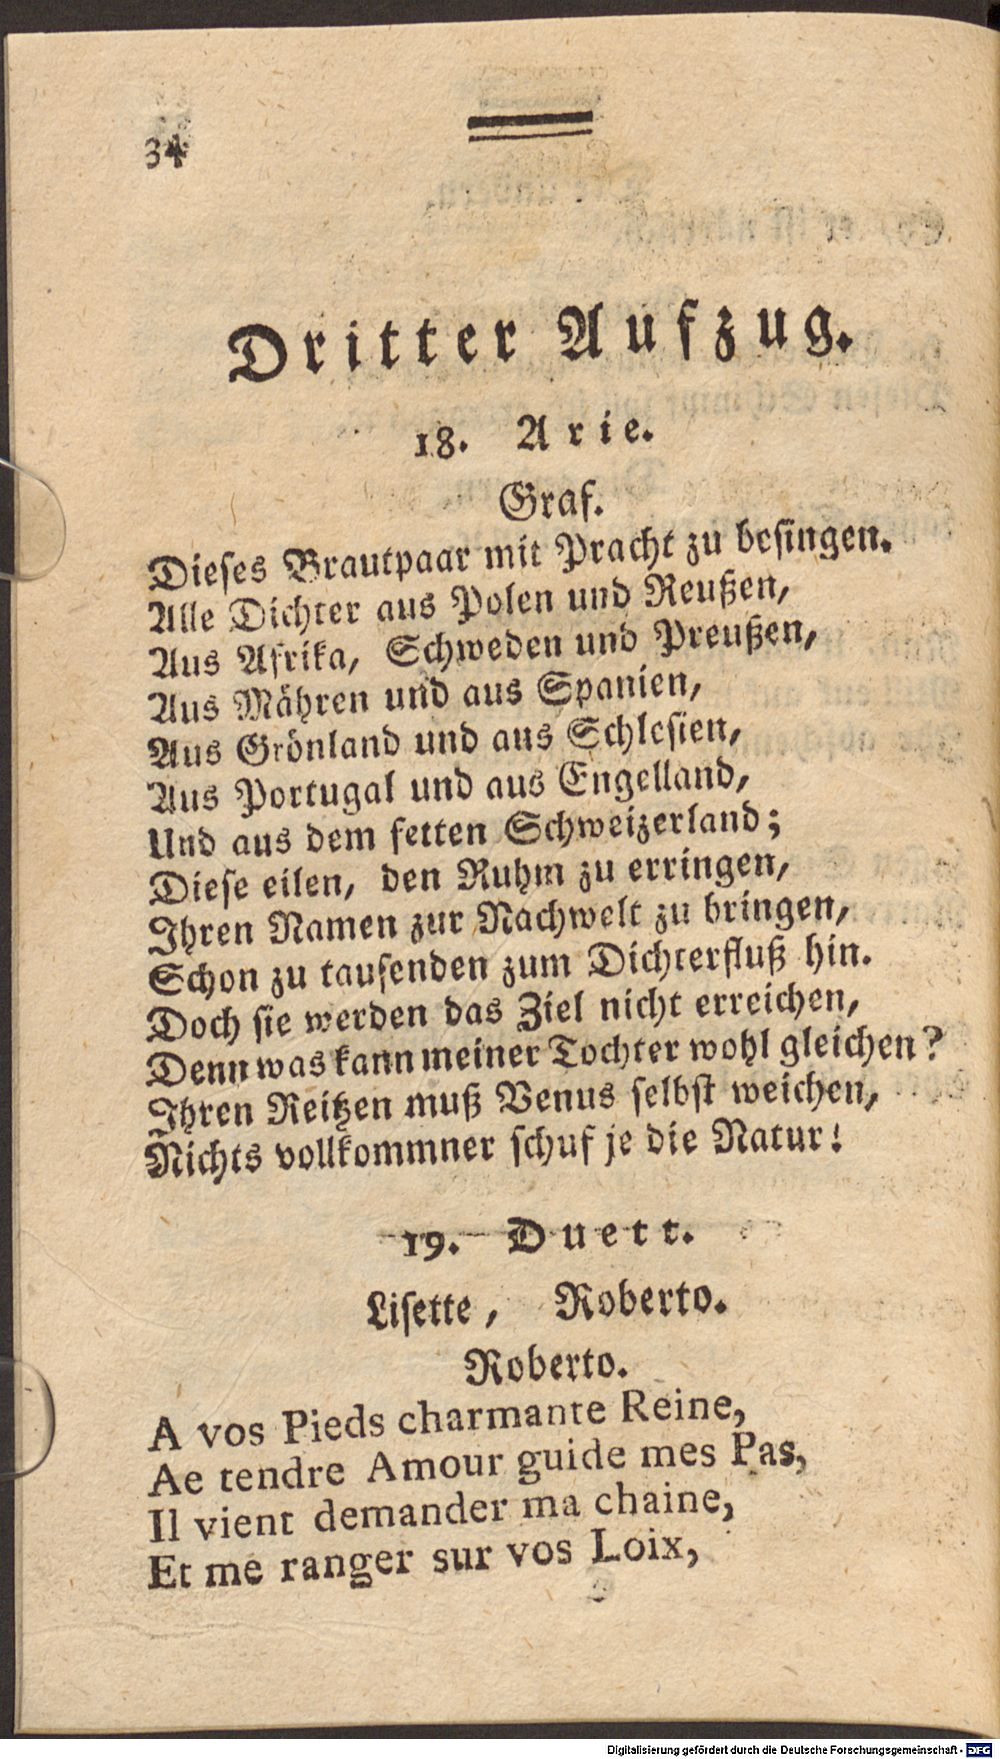 34
Dritter Aufzug.
18. Arie.
Graf.
Dieses Brautpaar mit Pracht zu besingen.
Alle Dichter aus Polen und Reußen,
Aus Afrika, Schweden und Preußen,
Aus Mähren und aus Spanien,
Aus Grönland und aus Schlesien,
Aus Portugal und aus Engelland,
Und aus dem fetten Schweizerland;
Diese eilen, den Ruhm zu erringen,
Ihren Namen zur Nachwelt zu bringen,
Schon zu tausenden zum Dichterfluß hin.
Doch sie werden das Ziel nicht erreichen,
Denn was kann meiner Tochter wohl gleichen?
Ihren Reitzen muß Venus selbst weichen,
Nichts vollkommner schuf je die Natur!
19. Duett.
Lisette, Roberto.
Roberto.
A vos Pieds charmante Reine,
Ae tendre Amour guide mes Pas,
Il vient demander ma chaine,
Et me ranger sur vos Loix,
Digitalisierung gefördert durch die Deutsche Forschungsgemeinschaft - DFG